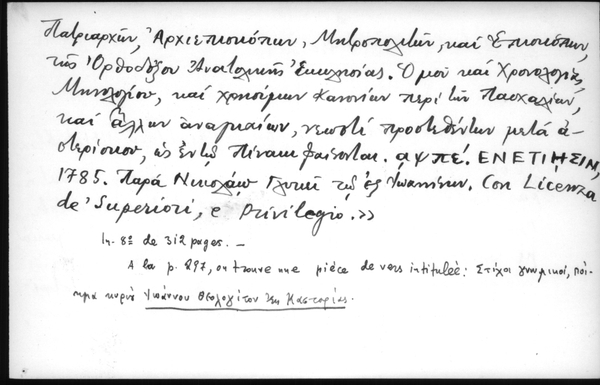 Πατριαρχῶν, Ἀρχιεπισκόπων, Μητροπολιτῶν, καὶ Ἐπισκόπων,
τῆς Ὀρθοδόξου Ἀνατολικῆς Ἐκκλησίας. Ὁμοῦ καὶ Χρονολογίας,
Μηνολογίου, καὶ χρησίμων κανονίων περὶ τῶν Πασχαλίων,
καὶ ἄλλων ἀναγκαίων, νεωστὶ προστεθέντων μετὰ ἀ-
στερίσκου, ὡς ἐν τῷ Πίνακι φαίνονται. αψπέ. ΕΝΕΤΙΗΣΙΝ,
1785. Παρὰ Νικολάῳ Γλυκεῖ τῷ ἐξ Ἰωαννίνων. Con Licenza
de' Superiori, e Privilegio.>>
In-8º de 312 pages. —
A la p. 297, on trouve une pièce de vers intitulée: Στίχοι γνωμικοί, ποί-
ημα κυρίου Ἰωάννου Θεολογίτου τῆς Καστορίας.